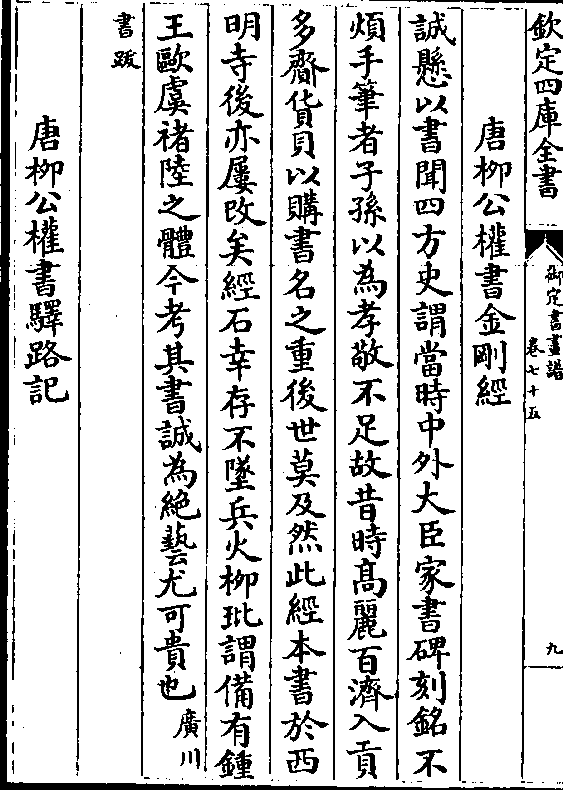 欽定四庫全書
御定書畫譜
卷七十五
九
唐柳公權書金剛經
誠懸以書聞四方史謂當時中外大臣家書碑刻銘不
煩手筆者子孫以為孝敬不足故昔時高麗百濟入貢
多齎貨貝以購書名之重後世莫及然此經本書於西
明寺後亦屢改矣經石幸存不墜兵火柳玭謂備有鍾
王歐虞禇陸之體今考其書誠為絶藝尤可貴也廣川
書跋
唐柳公權書驛路記